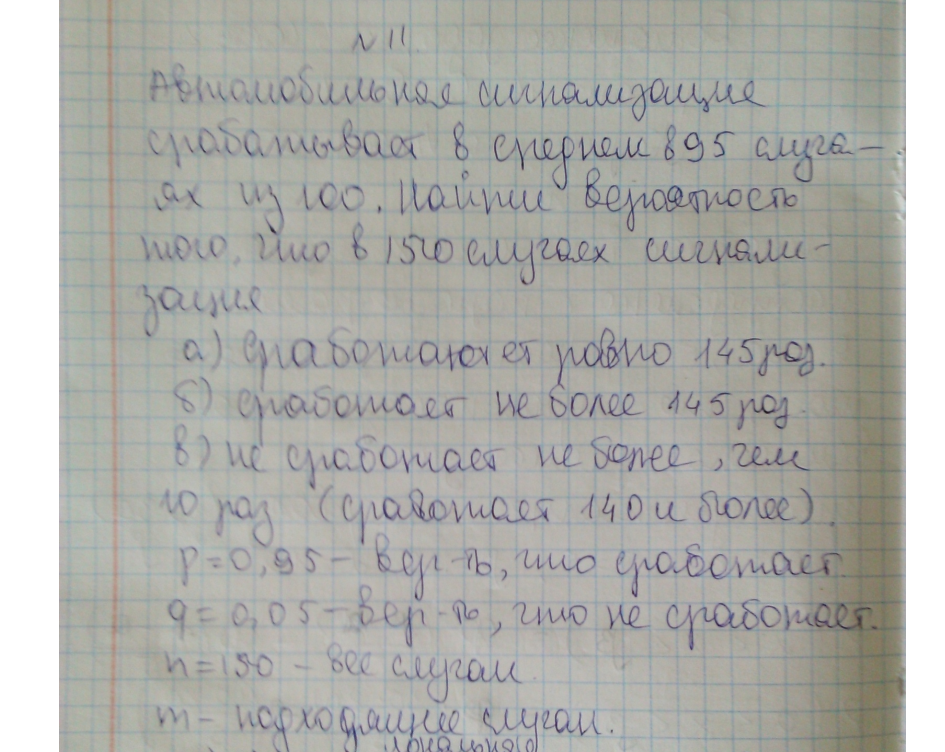 № 11
Автомобильная сигнализация
срабатывает в среднем в 95 случа-
ях из 100. Найти вероятность
того, что в 150 случаях сигнали-
зация
а) сработает ровно 145 раз.
б) сработает не более 145 раз.
в) не сработает не более, чем
10 раз (сработает 140 и более).
p = 0,95 - вер-ть, что сработает.
q = 0,05 - вер-ть, что не сработает.
n = 150 - все случаи.
m - подходящие случаи.
локального